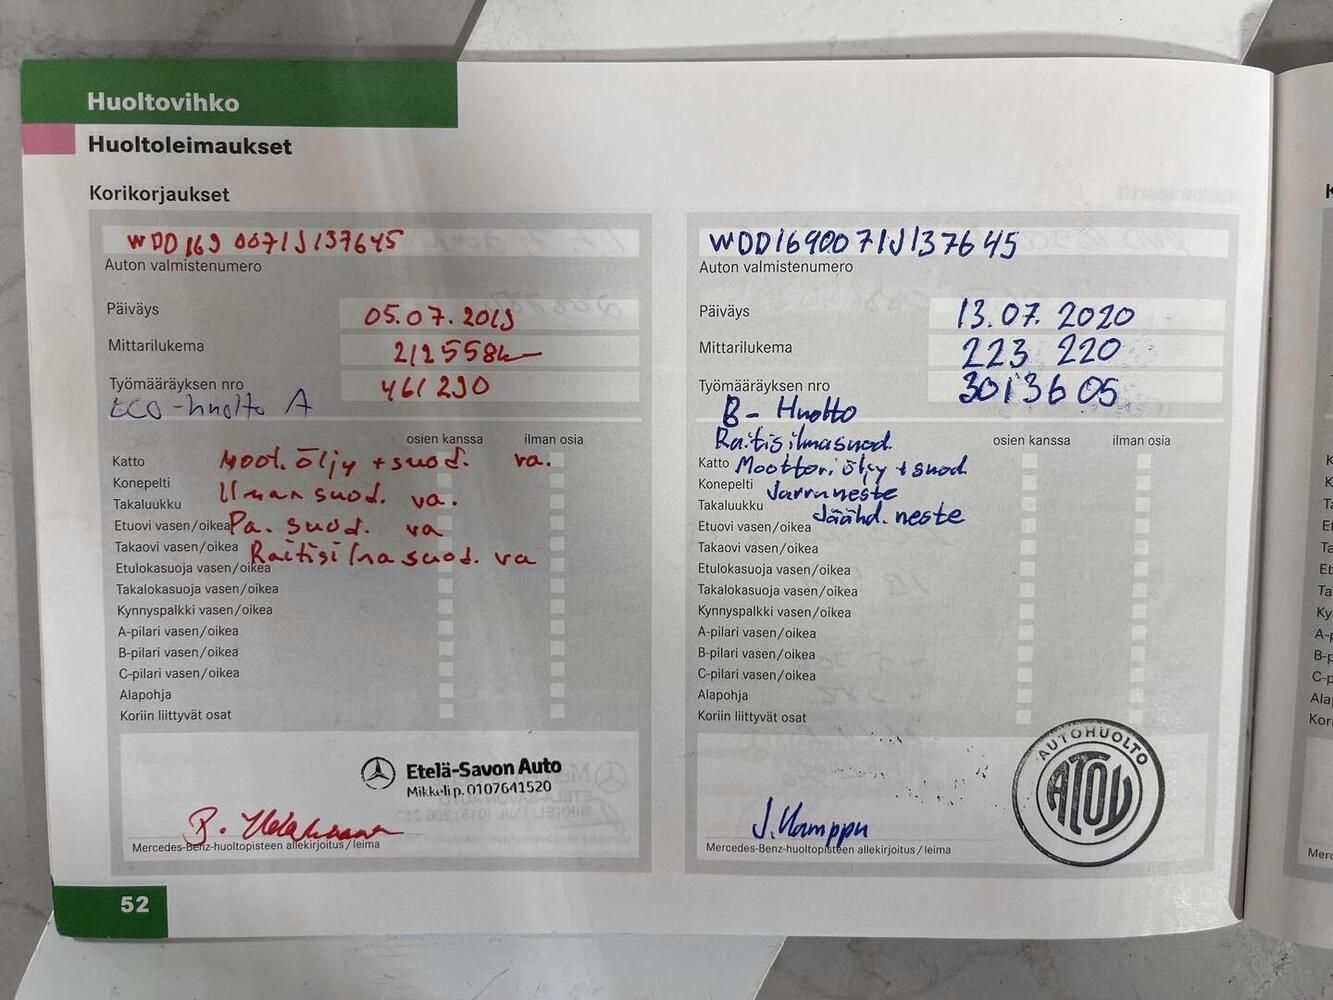 Huoltovihko
Huoltoleimaukset
Korikorjaukset
WDD1690071J137645
Auton valmistenumero
Päiväys 05.07.2019
Mittarilukema 212558km
Työmääräyksen nro 461290
ECO-huolto A
osien kanssa ilman osia
Katto Moot. öljy + suod. va.
Konepelti Ilmansuod. va.
Takaluukku
Etuovi vasen/oikea Pa. suod. va
Takaovi vasen/oikea Raitisilmasuod. va
Etulokasuoja vasen/oikea
Takalokasuoja vasen/oikea
Kynnyspalkki vasen/oikea
A-pilari vasen/oikea
B-pilari vasen/oikea
C-pilari vasen/oikea
Alapohja
Koriin liittyvät osat
Etelä-Savon Auto
Mikkeli p. 0107641520
Mercedes-Benz-huoltopisteen allekirjoitus/leima
52
WDD1690071J137645
Auton valmistenumero
Päiväys 13.07.2020
Mittarilukema 223 220
Työmääräyksen nro 3013605
B-Huolto
Raitisilmasuod.
osien kanssa ilman osia
Katto Moottoriöljy + suod
Konepelti Jarruneste
Takaluukku Jäähd. neste
Etuovi vasen/oikea
Takaovi vasen/oikea
Etulokasuoja vasen/oikea
Takalokasuoja vasen/oikea
Kynnyspalkki vasen/oikea
A-pilari vasen/oikea
B-pilari vasen/oikea
C-pilari vasen/oikea
Alapohja
Koriin liittyvät osat
AUTOHUOLTO
ATOY
J. Kamppu
Mercedes-Benz-huoltopisteen allekirjoitus/leima